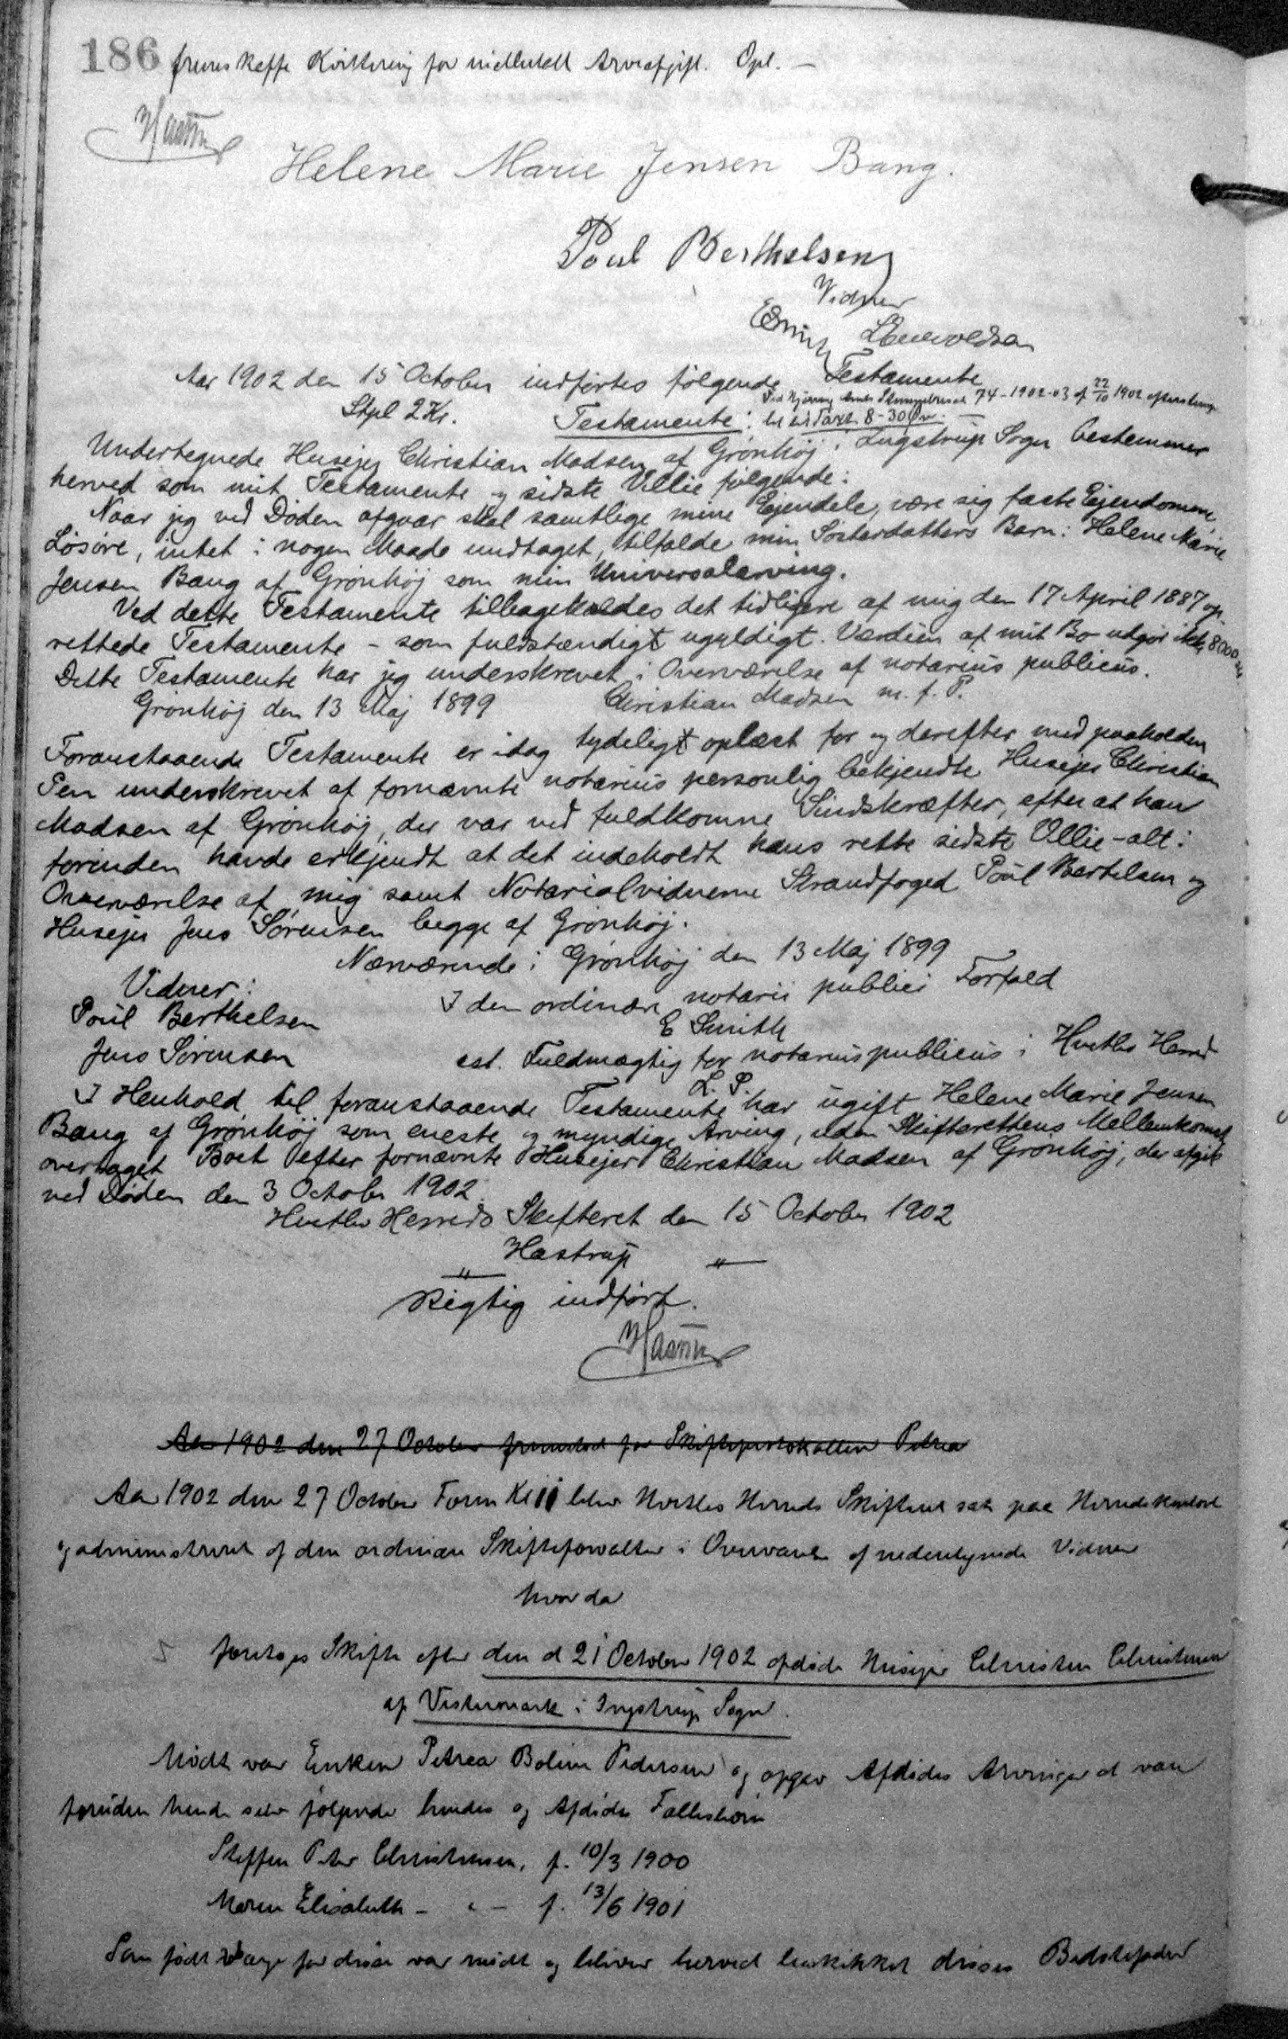 186 fremskaffe Kvittering for midlertidl Arveafgift. Opl. —
Hastrup
Helene Marie Jensen Bang.
Poul Berthelsen
Vidner
ESmith
Aar 1902 den 15 October indførtes følgende Testamente
Stpl 2 Kr.
74-1902-03 af 22/10 1902
Testamente: Taxt. 8-30
Undertegnede Husejer Christian Madsen af Grønhøj i Ingstrup Sogn bestemmer
herved som mit Testamente og sidste Villie følgende:
Naar jeg ved Døden afgaar skal samtlige mine Ejendele, være sig faste Ejendomme,
Løsøre, intet i nogen Maade undtaget, tilfalde min Søsterdatters Barn: Helene Marie
Jensen Bang af Grønhøj som min Universalarving.
Ved dette Testamente tilbagekaldes det tidligere af mig den 17 April 1887 op-
rettede Testamente – som fuldstændigt ugyldigt. Værdien af mit Bo udgør ikke 8000 Kr
Dette Testamente har jeg underskrevet i Overværelse af notarius publicus.
Grønhøj den 13 Maj 1899 Christian Madsen m. f. P.
Foranstaaende Testamente er idag tydeligt oplæst for og derefter med paaholden
Pen underskrevet af fornævnte notarius personlig bekjendte Husejer Christian
Madsen af Grønhøj, der var ved fuldkomne Sindskræfter, efter at han
forinden havde erkjendt at det indeholdt hans rette sidste Villie – alt i
Overværelse af mig samt Notarialvidnerne Strandfoged Poul Bertelsen og
Husejer Jens Sørensen begge af Grønhøj.
Nærværende i Grønhøj den 13 Maj 1899
Vidner: I den ordinære notarii publici Forfald
Poul Berthelsen E Smith
Jens Sørensen cst. Fuldmægtig for notarius publicus i Hvetbo Herred
L. S.
I Henhold til foranstaaende Testamente har ugift Helene Marie Jensen
Bang af Grønhøj som eneste og myndige Arving, uden Skifterettens Mellemkomst
overtaget Boet efter fornævnte Husejer Christian Madsen af Grønhøj, der afgik
ved Døden den 3 October 1902.
Hvetbo Herreds Skifteret den 15 October 1902
Hastrup
" "
Rigtig indført.
Hastrup
Aar 1902 den 27 October fremstod for Skifteprotokollen Petrea
Aar 1902 den 27 October Form Kl 11 blev Hvetbo Herreds Skifteret sat paa Herredskontoret
og administreret af den ordinære Skifteforvalter i Overværelse af nedentegnede Vidner
hvor da
foretoges Skifte efter den d 21 October 1902 afdøde Husejer Christen Christensen
af Vestermark i Ingstrup Sogn.
Mødt var Enken Petrea Boline Pedersen og opgav Afdødes Arvinger at være
foruden hende selv følgende hendes og Afdødes Fællesbørn
Steffen Peter Christensen, f. 10/3 1900
Maren Elisabeth – " – f. 13/6 1901
Som født Værge for disse var mødt og bliver herved beskikket disses Bedstefader